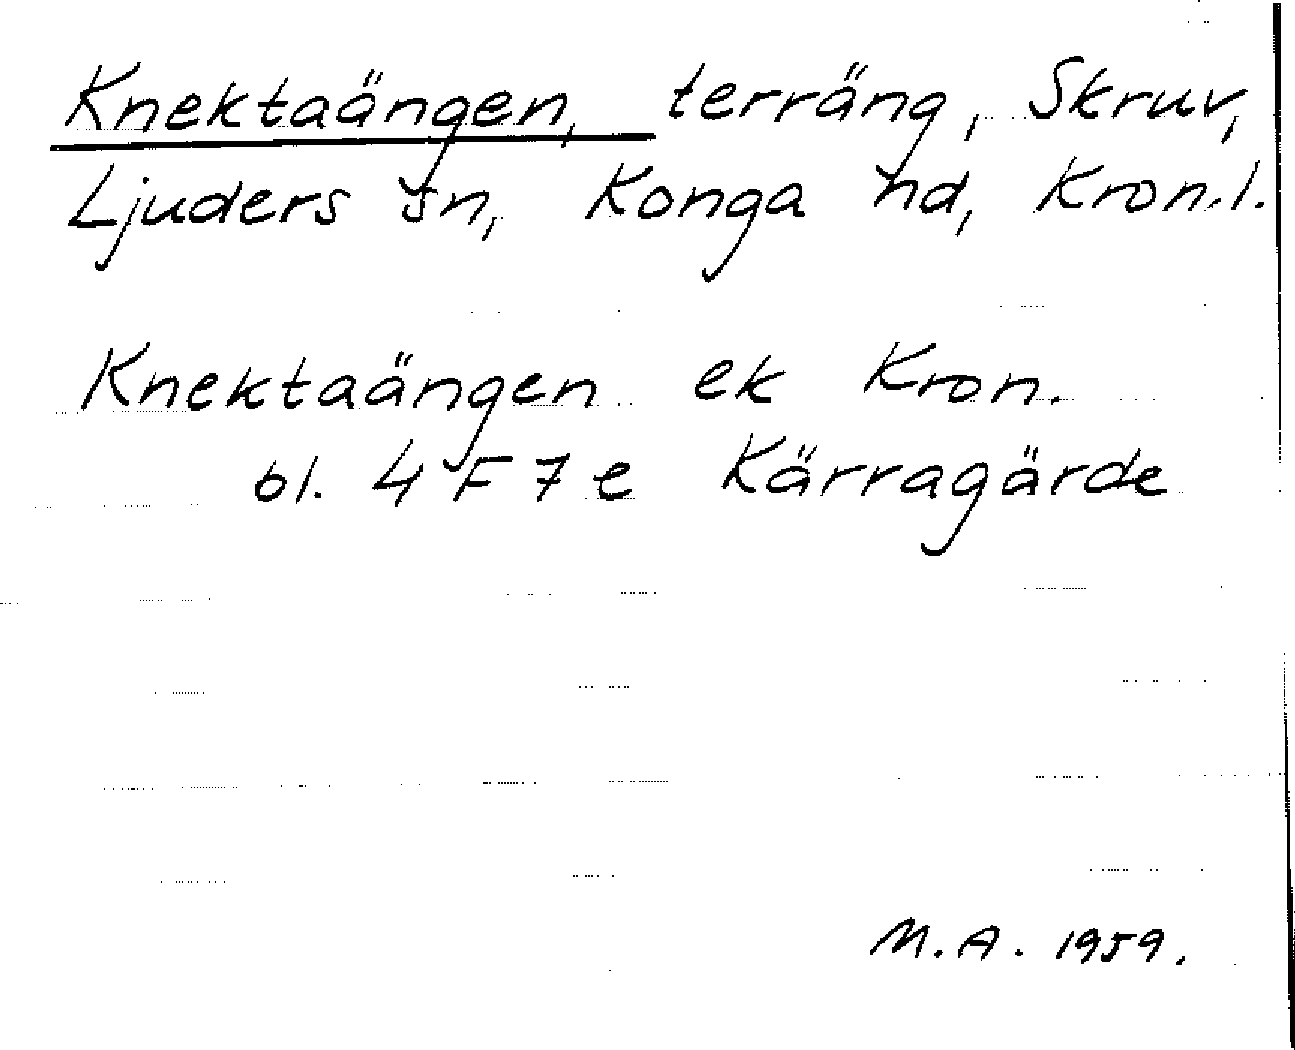 Knektaängen, terräng, Skruv,
Ljuders sn, Konga hd, Kron.l.
Knektaängen ek Kron.
bl. 4 F 7 e Kärragärde
M.A. 1959.